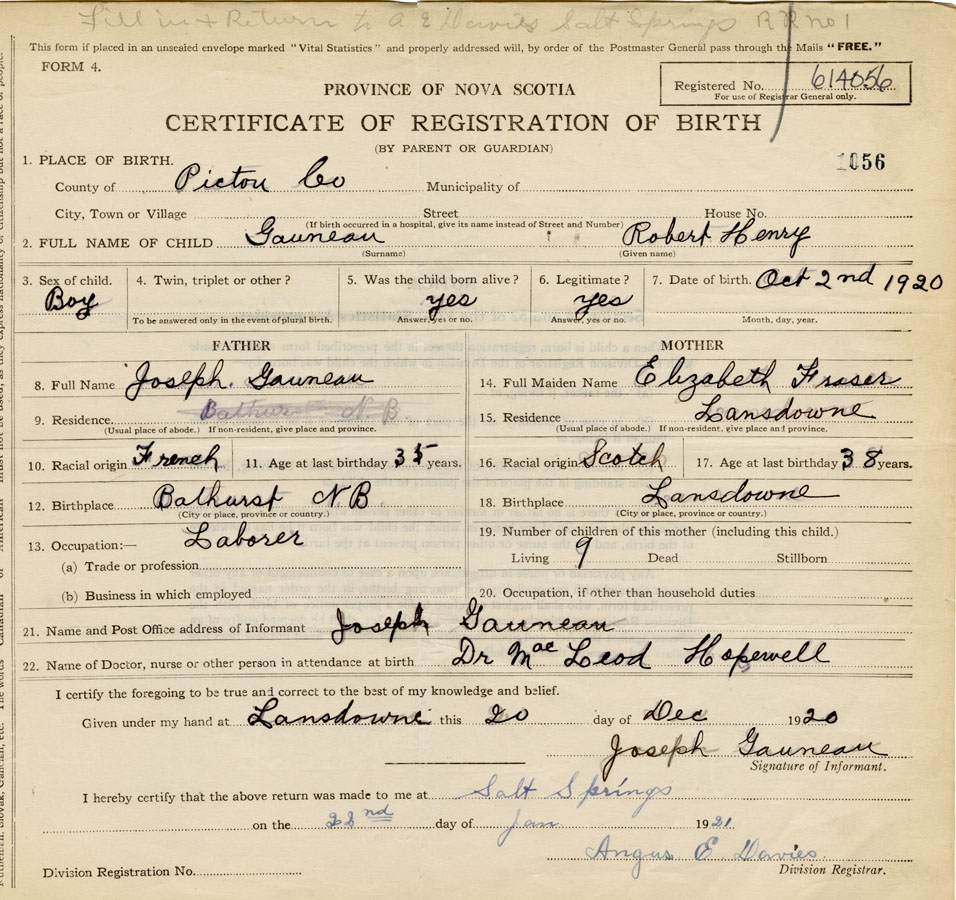 Fill in + Return to A E Davies Salt Springs R R no 1
This form if placed in an unsealed envelope marked "Vital Statistics" and properly addressed will, by order of the Postmaster General pass through the Mails "FREE."
FORM 4.
Registered No. 614056
For use of Registrar General only.
PROVINCE OF NOVA SCOTIA
CERTIFICATE OF REGISTRATION OF BIRTH
(BY PARENT OR GUARDIAN)
1056
1. PLACE OF BIRTH.
County of Pictou Co Municipality of
City, Town or Village Street House No.
(If birth occurred in a hospital, give its name instead of Street and Number)
2. FULL NAME OF CHILD Gauneau Robert Henry
(Surname) (Given name)
3. Sex of child. 4. Twin, triplet or other? 5. Was the child born alive? 6. Legitimate? 7. Date of birth. Oct 2nd 1920
Boy yes Yes
To be answered only in the event of plural birth. Answer, yes or no. Answer, yes or no. Month, day, year.
FATHER MOTHER
8. Full Name Joseph. Gauneau 14. Full Maiden Name Elizabeth Fraser
9. Residence. Bathurst N. B 15. Residence Lansdowne
(Usual place of abode.) If non-resident, give place and province. (Usual place of abode.) If non-resident, give place and province.
10. Racial origin French 11. Age at last birthday 35 years. 16. Racial origin Scotch 17. Age at last birthday 38 years.
12. Birthplace Bathurst NB 18. Birthplace Lansdowne
(City or place, province or country.) (City or place, province or country.)
13. Occupation:— Laborer 19. Number of children of this mother (including this child.)
(a) Trade or profession Living 9 Dead Stillborn
(b) Business in which employed 20. Occupation, if other than household duties
21. Name and Post Office address of Informant Joseph Gauneau
22. Name of Doctor, nurse or other person in attendance at birth Dr MacLeod Hopewell
I certify the foregoing to be true and correct to the best of my knowledge and belief.
Given under my hand at Lansdowne this 20 day of Dec 1920
Joseph Gauneau
Signature of Informant.
I hereby certify that the above return was made to me at Salt Springs
on the 22nd day of Jan 1921.
Angus E Davies.
Division Registrar.
Division Registration No.